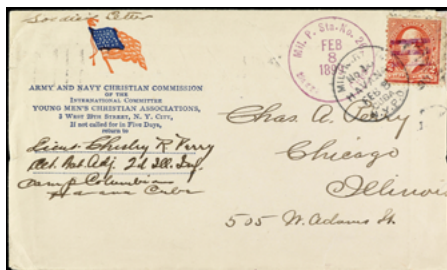 Soldier's Letter
ARMY AND NAVY CHRISTIAN COMMISSION
OF THE
INTERNATIONAL COMMITTEE
YOUNG MEN'S CHRISTIAN ASSOCIATIONS,
3 WEST 29TH STREET, N. Y. CITY,
If not called for in Five Days,
return to
Lieut Chesley R. Perry
Act. Bat. Adj. 2d Ill. Inf.
Camp Columbia
Havana Cuba
Mil. P. Sta. No.
FEB
8
Chas. A. Perry
Chicago
Illinois
505 W. Adams St.